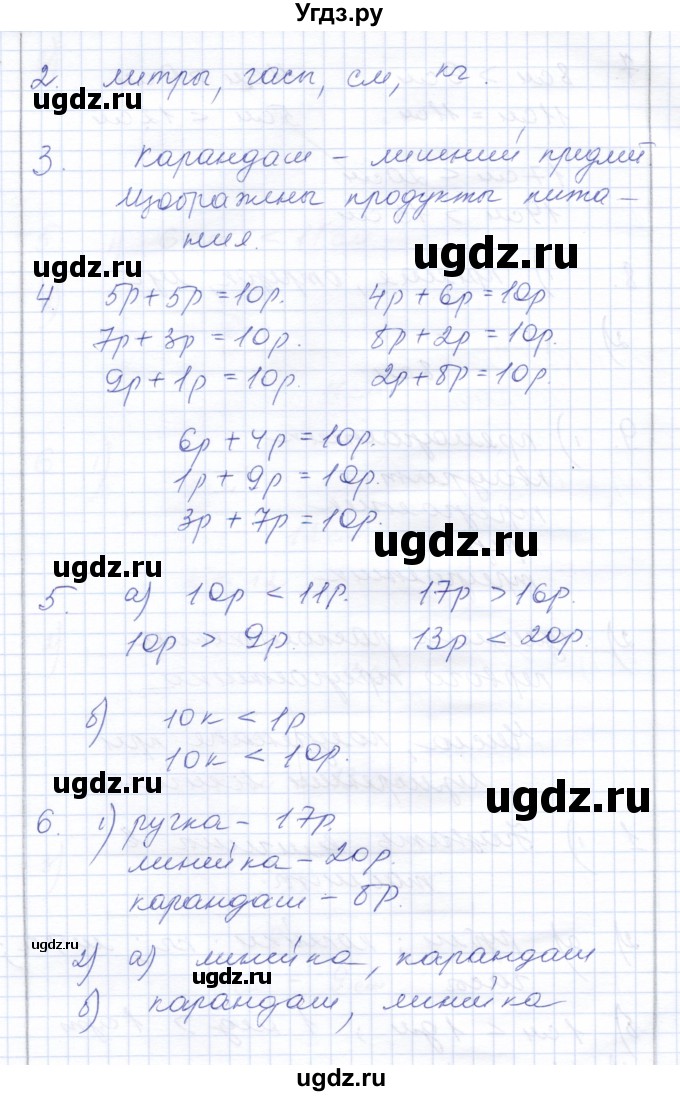 Угдз.ру
2. литры, часы, см, кг.
ugdz.ru
3. Карандаш – лишний предмет.
Изображены продукты пита –
ния.
ugdz.ru
ugdz.ru
4. 5р + 5р = 10р. 4р + 6р = 10р
7р + 3р = 10р. 8р + 2р = 10р.
9р + 1р = 10р. 2р + 8р = 10р
6р + 4р = 10р.
1р + 9р = 10р.
3р + 7р = 10р.
ugdz.ru
ugdz.ru
5. а) 10р < 11р. 17р > 16р.
10р > 9р. 13р < 20р.
б) 10к < 1р
10к < 10р.
ugdz.ru
ugdz.ru
6. 1) ручка – 17р.
линейка – 20р.
карандаш – 8р.
ugdz.ru
2) а) линейка, карандаш
ugdz.ru
б) карандаш, линейка
ugdz.ru